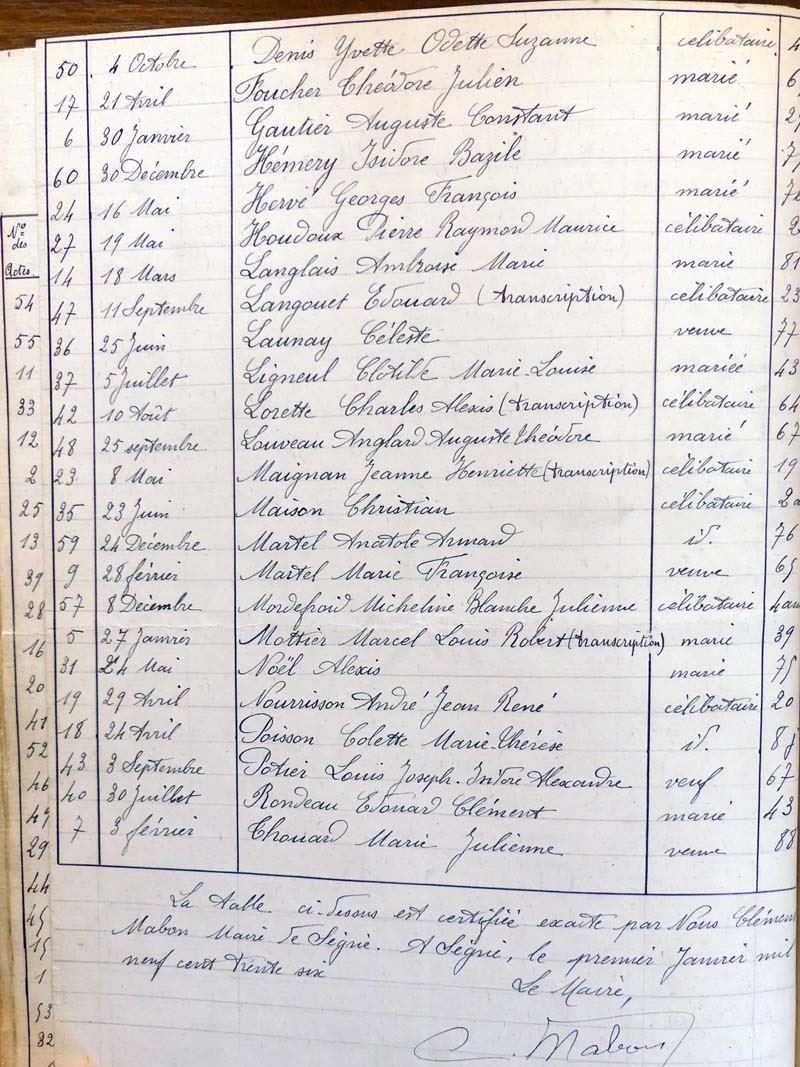 50 4 Octobre Denis Yvette Odette Suzanne célibataire 4
17 21 Avril Foucher Théodore Julien marié 6
6 30 Janvier Gautier Auguste Constant marié 2
60 30 Décembre Hémery Isidore Bazile marié 7
24 16 Mai Hervé Georges François marié 7
27 19 Mai Houdoux Pierre Raymond Maurice célibataire 2
14 18 Mars Langlais Ambroise Marie marié 81
47 11 Septembre Langouet Edouard (transcription) célibataire 23
36 25 Juin Launay Céleste veuve 77
37 5 Juillet Ligneul Clotilde Marie-Louise mariée 43
42 10 Août Lorette Charles Alexis (transcription) célibataire 64
48 25 septembre Louveau Anglard Auguste Théodore marié 67
23 8 Mai Maignan Jeanne Henriette (transcription) célibataire 19
35 23 Juin Maison Christian célibataire 2a
59 24 Décembre Martel Anatole Armand id. 76
9 28 février Martel Marie Françoise veuve 65
57 8 Décembre Mordefroid Micheline Blanche Julienne célibataire 4 an
5 27 Janvier Mottier Marcel Louis Robert (transcription) marié 39
31 24 Mai Noël Alexis marié 75
19 29 Avril Nourrisson André Jean René célibataire 20
18 24 Avril Poisson Colette Marie-Thérèse id. 8 j
43 3 Septembre Potier Louis Joseph-Isidore Alexandre veuf 67
40 30 Juillet Rondeau Edouard Clément marié 43
7 3 février Thouard Marie Julienne veuve 88
La table ci-dessus est certifiée exacte par Nous Clément
Mabon Maire de Ségrie. A Ségrie, le premier Janvier mil
neuf cent trente six
Le Maire,
C. Mabon
Nos
des
Actes
54
55
11
33
12
2
25
13
39
28
16
20
41
52
46
47
29
44
45
15
1
53
32